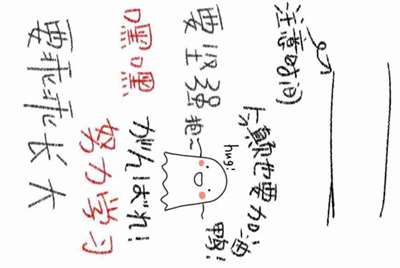 注意时间
也要加油
鸭!
hug!
要坚强 抱~
がんばれ!
嘿嘿 努力学习
要乖乖长大